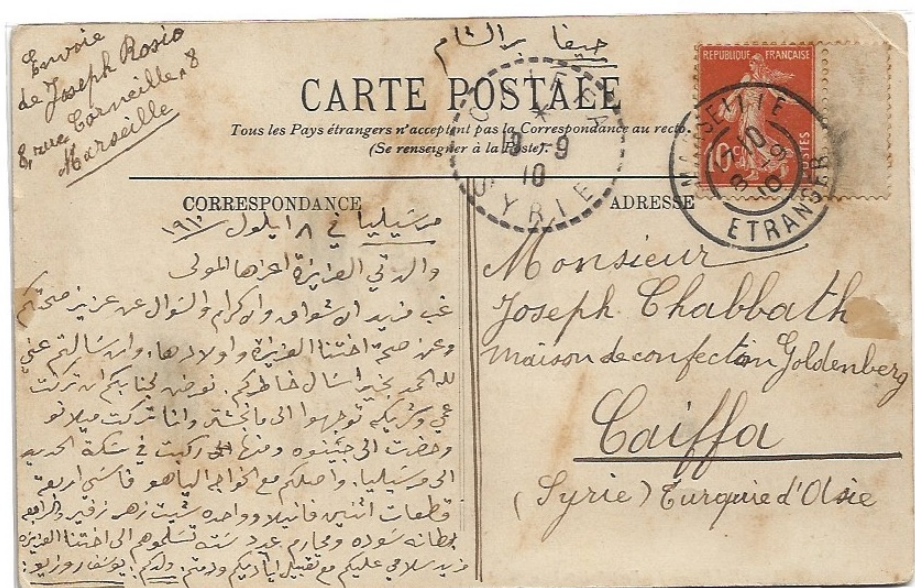 Envoie
de Joseph Rosio
8, rue Corneille, 8
Marseille
حيفا بر الشام
CARTE POSTALE
Tous les Pays étrangers n'acceptent pas la Correspondance au recto.
(Se renseigner à la Poste).
REPUBLIQUE FRANÇAISE
10
POSTES
MARSEILLE
ETRANGER
8 -9
10
SYRIE
9
10
CORRESPONDANCE
مرسيليا في ٨ ايلول ١٩١٠
والدتي العزيزة اعزها المولى
غب مزيد الاشواق والاكرام والسؤال عن عزيز صحتكم
وعن صحة اختنا العزيزة واولادها. وان سألتم عني
لله الحمد بخير اسأل خاطركم. نعرض لجنابكم ان تركت
عمي وشريكه توجهوا الى مانجستر وانا تركت ميلانو
وحضرت الى جينوه ومنها الى ركبت في سكة الحديد
الى مرسيليا. واصلكم مع الخواجه الياهو اربعة
قطعات اثنين فانيلا وواحده زهر
سوده ومحارم عدد سته تسلموهم الى اختنا العزيزة
مزيد سلامي عليكم مع تقبيل اياديكم ودمتم. ولدكم: يوسف روزيو:
ADRESSE
Monsieur
Joseph Chabbath
Maison de confection Goldenberg
Caiffa
(Syrie) Turquie d'Asie